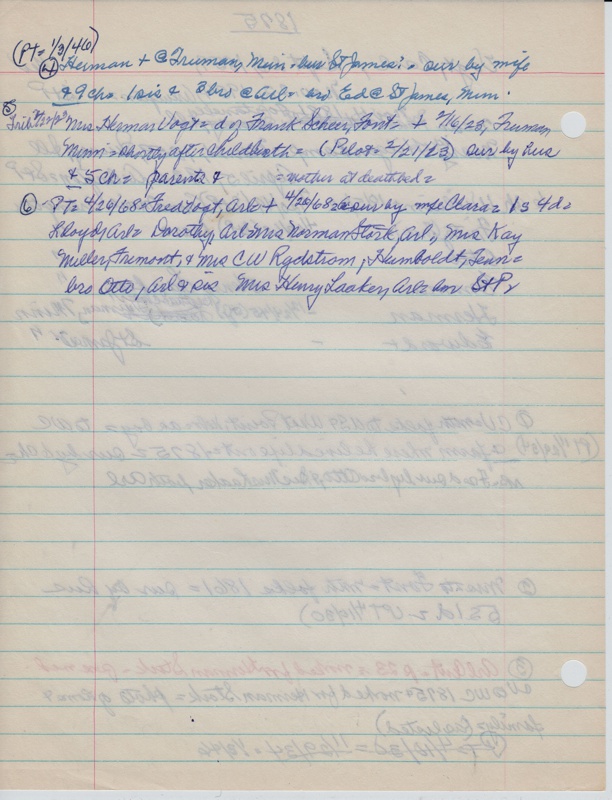 (PT = 1/3/46)
④ Herman + @ Truman, Minn - bur St James: - sur by wife
& 9 ch - 1 sis & 3 bro @ Arl - or Ed @ St James, Minn.
⑤
Trib Mrs Herman Vogt = d of Frank Scheer, Font = + 2/16/23, Truman
Minn = shortly after childbirth = (Pilot = 2/21/23) sur by hus
& 5 ch = parents & = mother at deathbed =
⑥ PT = 4/24/68 = Fred Vogt, Arl + 4/20/68 = sur by wife Clara = 1 s 4 d =
Lloyd, Arl = Dorothy, Arl = Mrs Norman Stork, Arl, Mrs Kay
Miller, Fremont, & Mrs CW Rydstrom, Humboldt, Tenn =
bro Otto, Arl & sis Mrs Henry Laaker, Arl = bur St P